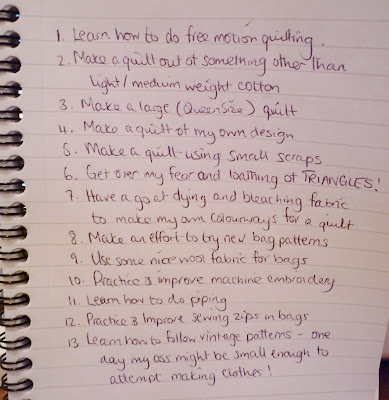 1. Learn how to do free motion quilting.
2. Make a quilt out of something other than
light/medium weight cotton
3. Make a large (Queen Size) quilt
4. Make a quilt of my own design
5. Make a quilt using small scraps
6. Get over my fear and loathing of TRIANGLES!
7. Have a go at dying and bleaching fabric
to make my own colourways for a quilt
8. Make an effort to try new bag patterns
9. Use some nice wool fabric for bags
10. Practice & improve machine embroidery
11. Learn how to do piping
12. Practice & Improve sewing zips in bags
13 Learn how to follow vintage patterns - one
day my ass might be small enough to
attempt making clothes!